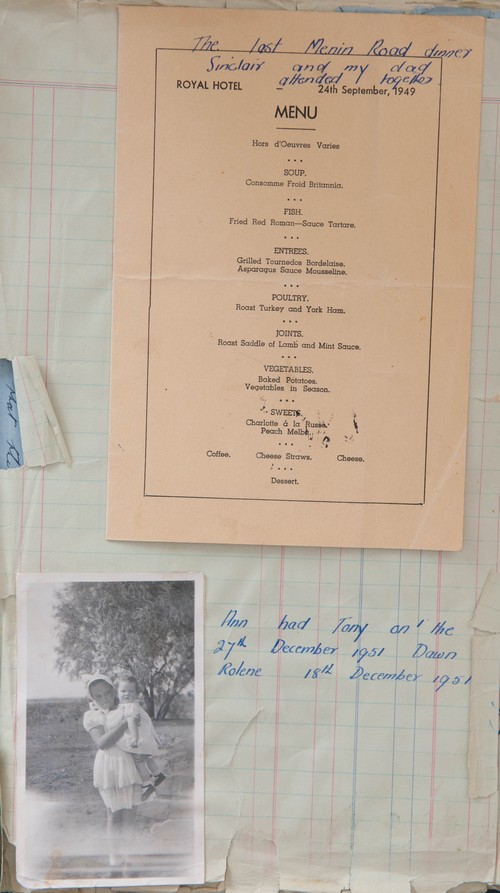 The last Menin Road dinner
Sinclair and my dad
attended together.
ROYAL HOTEL – 24th September, 1949
MENU
Hors d'Oeuvres Varies
• • •
SOUP.
Consomme Froid Britannia.
• • •
FISH.
Fried Red Roman—Sauce Tartare.
• • •
ENTREES.
Grilled Tournedos Bordelaise.
Asparagus Sauce Mousseline.
• • •
POULTRY.
Roast Turkey and York Ham.
• • •
JOINTS.
Roast Saddle of Lamb and Mint Sauce.
• • •
VEGETABLES.
Baked Potatoes.
Vegetables in Season.
• • •
SWEETS.
Charlotte á la Russe.
Peach Melba.
• • •
Coffee. Cheese Straws. Cheese.
• • •
Dessert.
Ann had Tony on the
27th December 1951 Dawn
Rolene 18th December 1951